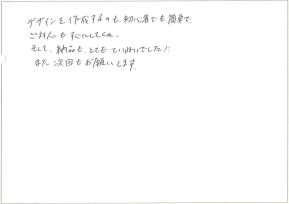 デザインを作成するのも、初心者でも簡単で、
ご対応もすぐにしてくれ、
そして、納品も、とてもていねいでした!!
また次回もお願いします。